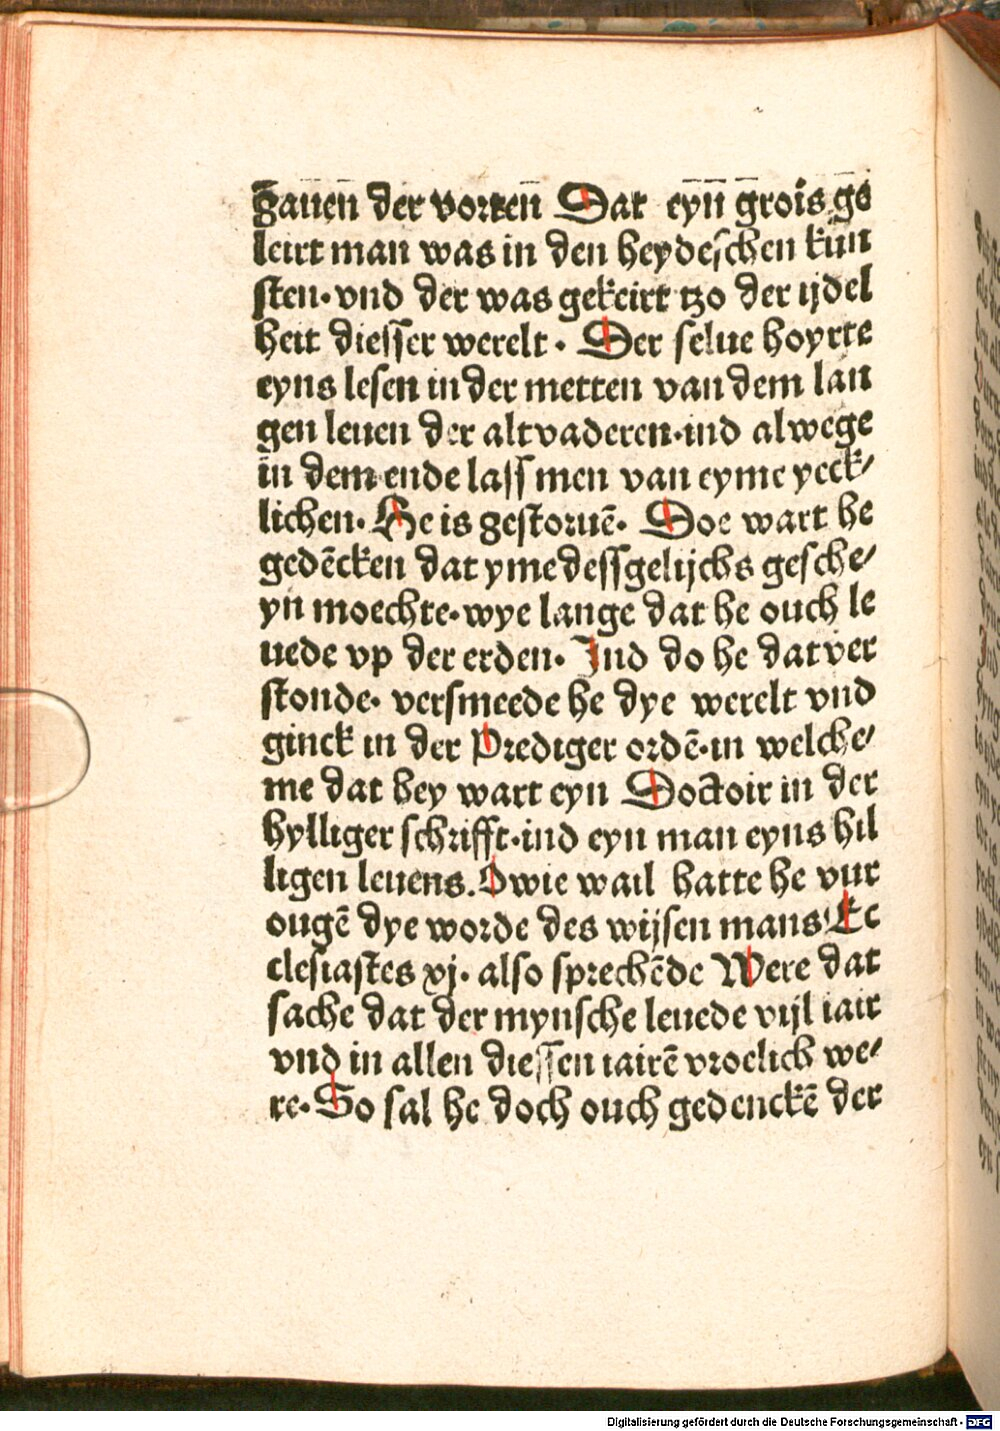 gauen der vorten Dat eyn grois ge
leirt man was in den heydeschen kun
sten. vnd der was gekeirt tzo der ijdel
heit diesser werelt. Der selue hoyrte
eyns lesen in der metten van dem lan
gen leuen der altvaderen. ind alwege
in dem ende lass men van eyme yeck/
lichen. He is gestoruē. Doe wart he
gedēcken dat yme dessgelijchs gesche/
yn moechte. wye lange dat he ouch le
uede vp der erden. Ind do he dat ver
stonde. versmeede he dye werelt vnd
ginck in der Prediger ordē. in welche/
me dat hey wart eyn Doctoir in der
hylliger schrifft. ind eyn man eyns hil
ligen leuens. O wie wail hatte he vur
ougē dye worde des wijsen mans Ec
clesiastes xj. also sprechēde Were dat
sache dat der mynsche leuede vijl iair
vnd in allen diessen iairē vroelich we/
re. So sal he doch ouch gedenckē der
Digitalisierung gefördert durch die Deutsche Forschungsgemeinschaft - DFG